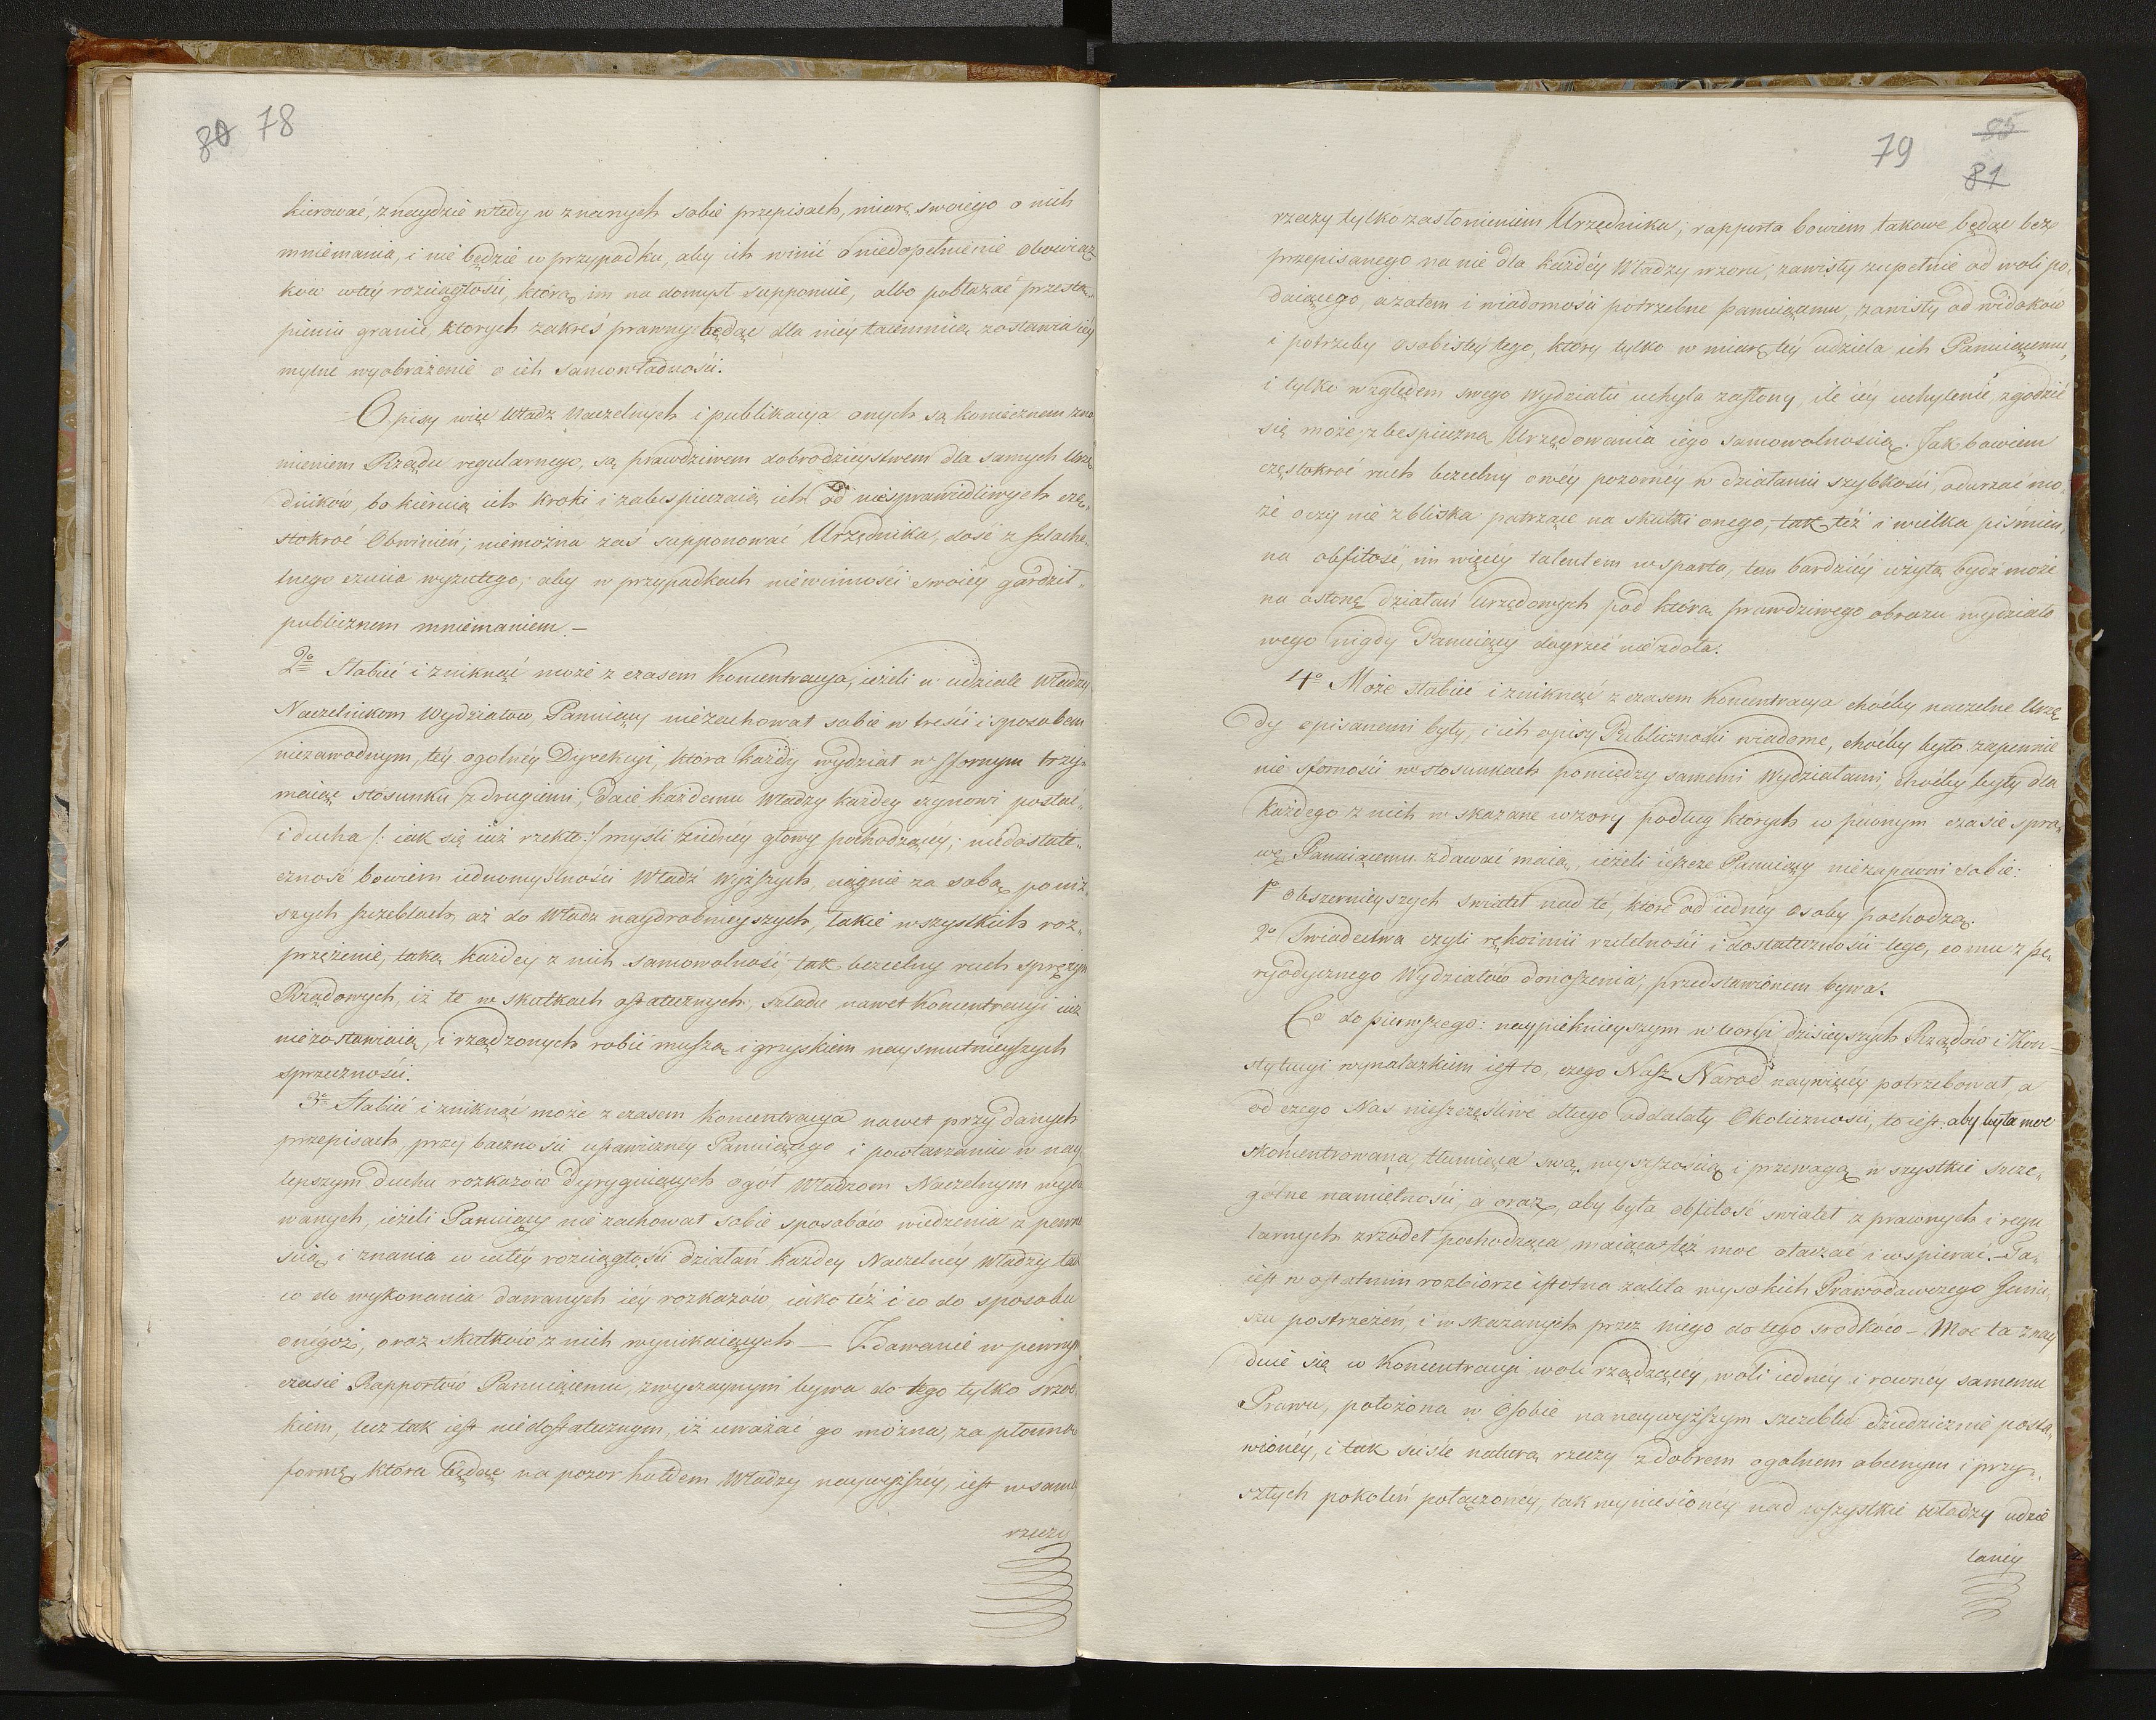 80 78
kierować, znaydzie wtedy w znanych sobie przepisach, miarę swoiego o nich
mniemania, i nie będzie w przypadku, aby ich winić o niedopełnienie obowiąz
ków w téy rozciągłości, którą im na domysł supponuie, albo pobłażać przestą„
pieniu granic, ktorych zakreś prawny będąc dla niéy taiemnicą zostawia iéy
mylne wyobrażenie o ich samowładności.
Opisy więc Władz Naczelnych i publikacya onych są koniecznem zna
mieniem Rządu regularnego, są prawdziwem dobrodzieystwem dla samych Urzę
dników, bo kieruią ich kroki i zabespieczaią ich od niesprawiedliwych czę„
stokroć Obwinień; niemożna zaś supponować Urzędnika, dość z szlache„
tnego czucia wyzutego, aby w przypadkach niewinności swoiéy gardził„
publicznem mniemaniem. –
2o Słabieć i zniknąć może z czasem Koncentracya, ieżeli w udziale Władzy
Naczelnikom Wydziałów, Panuiący niezachował sobie w treści i sposobem
niezawodnym, téy ogolnéy Dyrekcyi, która każdy wydział w sfornym trzy„
maiąc stosunku z drugiemi, daie każdemu Władzy każdey czynowi postać„
i ducha /: iak się iuż rzekło :/ myśli ziednéy głowy pochodzącéy; niedostate„
czność bowiem iednomyślności Władz Wyższych, ciągnie za sobą po niż
szych szczeblach, aż do Władz naydrobnieyszych, takie wszystkich roz„
przężenie, taką każdey z nich samowolność, tak bezcelny ruch sprężyn
Rządowych, iż te w skutkach ostatecznych, śladu nawet Koncentracyi iuż
niezostawiaią, i rządzonych robić muszą igrzyskiem naysmutnieyszych
sprzeczności.
3o Słabieć i zniknąć może z czasem koncentracya nawet przy danych
przepisach, przy baczności ustawiczney Panuiącego i powtarzaniu w nay
lepszym duchu rozkazów dyryguiących ogół Władzom Naczelnym wyda
wanych, ieżeli Panuiący nie zachował sobie sposobów wiedzenia z pewno
ścią, i znania w całéy rozciągłości działań każdey Naczelnéy Władzy tak
co do wykonania dawanych iéy rozkazów, iako téż i co do sposobu
onégoż, oraz skutków z nich wynikaiących — Zdawanie w pewnym
czasie Rapportów Panuiącemu, zwyczaynym bywa do tego tylko środ„
kiem, lecz tak iest niedostatecznym, iż uważać go można, za płonną
formę, która będąc na pozor hołdem Władzy naywyższéy, iest w saméy
rzeczy
79 85
81
rzeczy tylko zasłonieniem Urzędnika; rapporta bowiem takowe będąc bez
przepisanego na nie dla każdéy Władzy wzoru, zawisły zupełnie od woli po„
daiącego, a zatem i wiadomości potrzebne panuiącemu, zawisły od widoków
i potrzeby osobistéy tego, który tylko w miarę téy udziela ich Panuiącemu,
i tylko względem swego wydziału uchyla zasłony, ile iéy uchylenie, zgodzić
się może, z bespieczną Urzędowania iego samowolnością. Jak bowiem
częstokroć ruch bezcelny owéy pozornéy w działaniu szybkości, odurzać mo„
że oczy nie zbliska patrzące na skutki onego, tak téż i wielka piśmien„
na obfitość, im więcéy talentem wsparta, tem bardziéy użytą bydź może
na osłonę działań Urzędowych pod którą prawdziwego obrazu wydziało
wego nigdy Panuiący doyrzeć nie zdoła.
4o Może słabieć i zniknąć z czasem koncentracya choćby naczelne Urzę
dy opisanemi były, i ich opisy Publiczności wiadome, choćby było zapewnie
nie sforności w stosunkach pomiędzy samemi Wydziałami, choćby były dla
każdego z nich wskazane wzory podług ktorych w pewnym czasie spra„
wę Panuiącemu zdawać maią, ieżeli ieszcze Panuiący niezapewni sobie:
1o obszernieyszych świateł nad te, które od iednéy osoby pochodzą.
2o Świadectwa czyli rękoimii rzetelności i dostateczności tego, co mu z pe„
ryodycznego Wydziałów donoszenia, przedstawionem bywa.
Co do pierwszego: naypięknieyszym w teoryi dzisieyszych Rządów i Kon„
stytucyi wynalazkiem iest to, czego Nasz Naród naywięcéy potrzebował, a
od czego Nas nieszczęśliwe długo oddalały Okoliczności, to iest: aby była moc
skoncentrowana, tłumiąca swą wyższością i przewagą wszystkie szcze„
gólne namiętności, a oraz, aby była obfitość świateł z prawnych i regu
larnych źrzódeł pochodząca, maiąca téż moc otaczać i wspierać. – Ta„
iest w ostatnim rozbiorze istotna zaleta wysokich Prawodawczego Geniu„
szu postrzeżeń, i wskazanych przez niego do tego środków – Moc ta znay
duie się w Koncentracyi woli rządzącéy, woli iednéy i rowney samemu
Prawu, położona w Osobie na naywyższym szczeblu dziedzicznie posta„
wionéy, i tak ściśle naturą rzeczy z dobrem ogólnem obecnym i przy„
szłych pokoleń połączoney, tak wyniesionéy nad wszystkie władzy udzie
lanéy